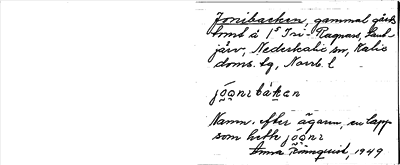 Jonibacken, gammal gårds
tomt å 1⁵ Tri-Ragnars, Saul-
järv, Nederkalix sn, Kalix
doms. tg, Norrb. l
jóónıbákɛn
Namn. efter ägaren, en lapp
som hette jóónı
Anna Rönnquist 1949